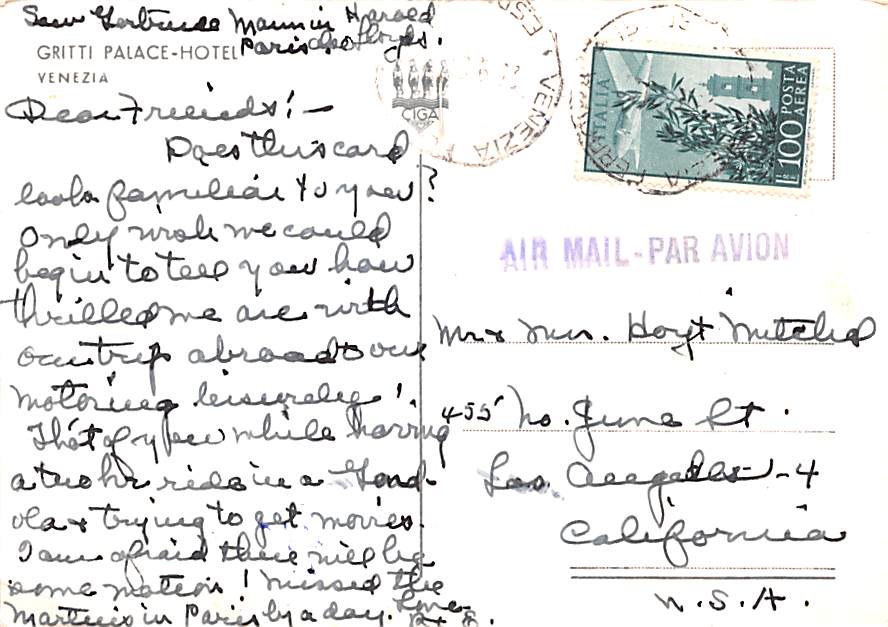 Saw Gertrude Maurice Harold
Paris also Lloyds.
GRITTI PALACE-HOTEL
VENEZIA
CIGA
Dear Friends! —
Does this card
look familiar to you?
Only wish we could
begin to tell you how
thrilled we are with
our trip abroad & our
motoring leisurely!
Tho't of you while having
a two hr ride in a Gond-
ola & trying to get movies.
I am afraid there will be
some motion! Missed the
Martins in Paris by a day. Love
VENEZIA
ESP
POSTA
AEREA
L. 100
ITALIA
AIR MAIL - PAR AVION
Mr & Mrs. Hoyt Mitchel
455 No. June St.
Los Angeles - 4
California
U.S.A.